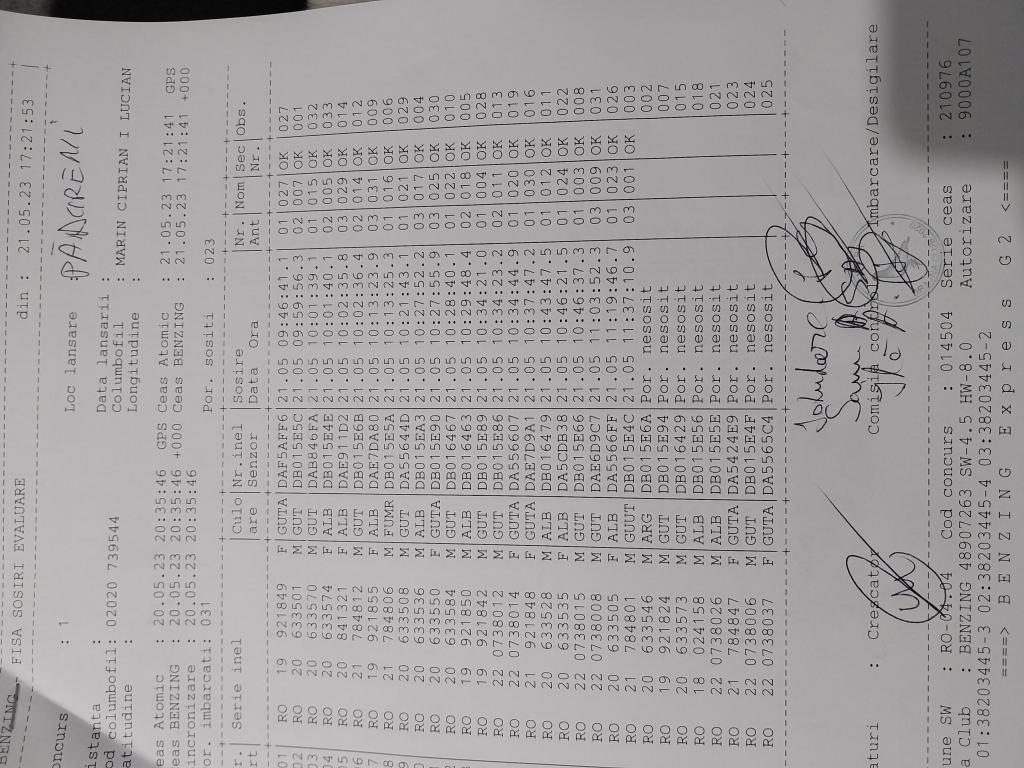 BENZING FISA SOSIRI EVALUARE din : 21.05.23 17:21:53
oncurs : 1 Loc lansare : PĂNCRENI
istanta : Data lansarii :
od columbofil: 02020 739544 Columbofil : MARIN CIPRIAN I LUCIAN
atitudine : Longitudine :
eas Atomic : 20.05.23 20:35:46 GPS Ceas Atomic : 21.05.23 17:21:41 GPS
eas BENZING : 20.05.23 20:35:46 +000 Ceas BENZING : 21.05.23 17:21:41 +000
incronizare : 20.05.23 20:35:46
or. imbarcati: 031 Por. sositi : 023
r. Serie inel Culo Nr.inel Sosire Nr. Nom Sec Obs.
rt are Senzor Data Ora Ant Nr.
01 RO 19 921849 F GUTA DAF5AFF6 21.05 09:46:41.1 02 027 OK 027
02 RO 20 633501 M GUT DB015E5C 21.05 09:59:56.3 02 007 OK 001
03 RO 20 633570 M GUT DAB846FA 21.05 10:01:39.1 01 015 OK 032
04 RO 20 633574 F ALB DB015E4E 21.05 02 005 OK 033
05 RO 20 841321 F ALB DAE911D2 21.05 10:02:35.8 03 029 OK 014
06 RO 21 784812 M GUT DB015E6B 21.05 10:02:36.4 02 014 OK 012
7 RO 19 921855 F ALB DAE7DA80 21.05 10:13:23.9 03 031 OK 009
8 RO 21 784806 M FUMR DB015E5A 21.05 10:13:25.3 01 016 OK 006
9 RO 20 633508 M GUT DA55644D 21.05 10:21:43.1 01 021 OK 029
0 RO 20 633536 M ALB DB015EA3 21.05 10:27:52.2 03 017 OK 004
1 RO 20 633550 F GUTA DB015E90 21.05 10:27:55.9 03 025 OK 030
2 RO 20 633584 M GUT DB016467 21.05 10:28:40.1 01 022 OK 010
RO 19 921850 M ALB DB016463 21.05 10:29:48.4 02 018 OK 005
RO 19 921842 M GUT DB015E89 21.05 10:34:21.0 01 004 OK 028
RO 22 0738012 M GUT DB015E86 21.05 10:34:23.2 02 011 OK 013
RO 22 0738014 F GUTA DA556607 21.05 10:34:44.9 01 020 OK 019
RO 21 921848 F GUTA DAE7D9A1 21.05 10:37:47.2 01 030 OK 016
RO 20 633528 M ALB DB016479 21.05 10:43:47.5 01 012 OK 011
RO 20 633535 F ALB DA5CDB38 21.05 10:46:21.5 01 024 OK 022
RO 22 0738015 M GUT DB015E66 21.05 10:46:37.3 01 003 OK 008
RO 22 0738008 M GUT DAE6D9C7 21.05 11:03:52.3 03 009 OK 031
RO 20 633505 F ALB DA5566FF 21.05 11:19:46.7 01 023 OK 026
RO 21 784801 M GUUT DB015E4C 21.05 11:37:10.9 03 001 OK 003
RO 20 633546 M ARG DB015E6A Por. nesosit 002
RO 19 921824 M GUT DB015E94 Por. nesosit 007
RO 20 633573 M GUT DB016429 Por. nesosit 015
RO 18 024158 M ALB DB015E56 Por. nesosit 018
RO 22 0738026 M ALB DB015E5E Por. nesosit 021
RO 21 784847 F GUTA DA5424E9 Por. nesosit 023
RO 22 0738006 M GUT DB015E4F Por. nesosit 024
RO 22 0738037 F GUTA DA5565C4 Por. nesosit 025
aturi : Crescator Comisia Imbarcare/Desigilare
une SW : RO-04.04 Cod concurs : 014504 Serie ceas : 210976
a Club : BENZING 48907263 SW-4.5 HW-8.0 Autorizare : 9000A107
01:38203445-3 02:38203445-4 03:38203445-2
====> B E N Z I N G E x p r e s s G 2 <====